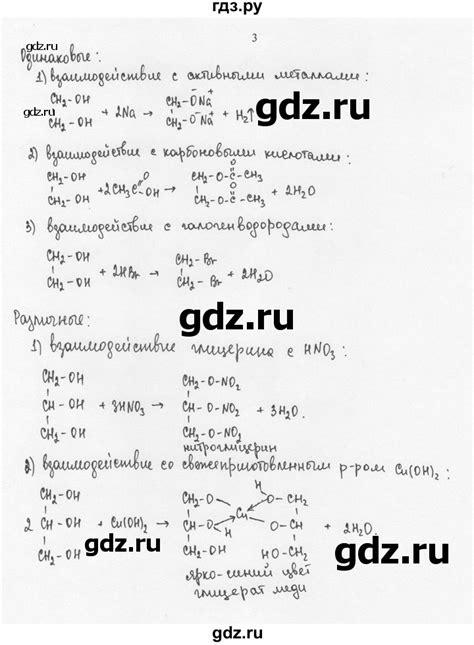 гдз.ру
3
gdz.ru
Одинаковые:
1) взаимодействие с активными металлами:
CH₂-OH CH₂-O⁻Na⁺
| + 2Na → | + H₂↑
CH₂-OH CH₂-O⁻Na⁺
gdz.ru
2) взаимодействие с карбоновыми кислотами:
CH₂-OH O CH₂-O-C-CH₃
| +2CH₃C → | + 2H₂O
CH₂-OH OH CH₂-O-C-CH₃
gdz.ru
3) взаимодействие с галогенводородами:
CH₂-OH CH₂-Br
| + 2HBr → | + 2H₂O
CH₂-OH CH₂-Br
gdz.ru
Различные:
1) взаимодействие глицерина с HNO₃:
CH₂-OH CH₂-O-NO₂
CH-OH + 3HNO₃ → CH-O-NO₂ + 3H₂O.
CH₂-OH CH₂-O-NO₂
gdz.ru
нитроглицерин
2) взаимодействие со свежеприготовленным р-ром Cu(OH)₂
CH₂-OH CH₂-O H O-CH₂
2 CH-OH + Cu(OH)₂ → CH-O Cu O-CH + 2H₂O.
CH₂-OH CH₂-OH H HO-CH₂
gdz.ru
ярко-синий цвет
глицерат меди
gdz.ru
гдз.ру